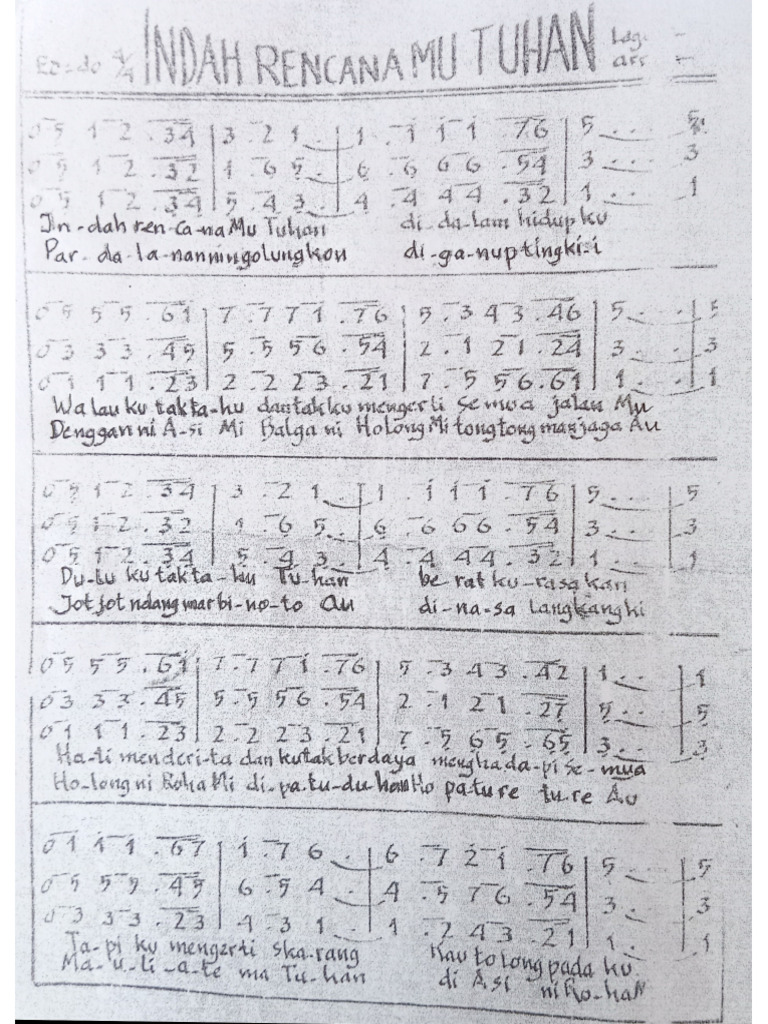 Es=do 4/4 INDAH RENCANA MU TUHAN Lag. -
arr -
0 5 1 2 . 34 | 3 . 2 1 . | 1 . 1 1 1 . 76 | 5 . . . 5
0 5 1 2 . 32 | 1 . 6 5 . | 6 . 6 6 6 . 54 | 3 . . . 3
0 5 1 2 . 34 | 5 . 4 3 . | 4 . 4 4 4 . 32 | 1 . . . 1
In-dah ren-ca-na Mu Tuhan di-da-lam hidup ku
Par-da-la-nanningolungkon di-ga-nuptingki-i
0 5 5 5 . 61 | 7 . 7 7 1 . 76 | 5 . 3 4 3 . 46 | 5 . . . | 5
0 3 3 3 . 45 | 5 . 5 5 6 . 54 | 2 . 1 2 1 . 24 | 3 . . . | 3
0 1 1 1 . 23 | 2 . 2 2 3 . 21 | 7 . 5 5 6 . 61 | 1 . . . | 1
Walau ku takta-hu dantakku mengerti semua jalan Mu
Denggan ni A-si Mi Balga ni Holong Mi tongtong manjaga Au
0 5 1 2 . 34 | 3 . 2 1 . | 1 . 1 1 1 . 76 | 5 . . . | 5
0 5 1 2 . 32 | 1 . 6 5 . | 6 . 6 6 6 . 54 | 3 . . . | 3
0 5 1 2 . 34 | 5 . 4 3 . | 4 . 4 4 4 . 32 | 1 . . . | 1
Du-lu ku takta-hu Tu-han be rat ku-rasakan
Jotjot ndang marbi-no-to au di-na-sa langkangki
0 5 5 5 . 61 | 7 . 7 7 1 . 76 | 5 . 3 4 3 . 42 | 1 . . . | 1
0 3 3 3 . 45 | 5 . 5 5 6 . 54 | 2 . 1 2 1 . 27 | 5 . . . | 5
0 1 1 1 . 23 | 2 . 2 2 3 . 21 | 7 . 5 6 5 . 65 | 3 . . . | 3
Ha-ti menderi-ta dan kutak berdaya menghada-pi se-mua
Ho-long ni Roha Mi di-pa-tu-du-hon Ho pature tu-re Au
0 1 1 1 . 67 | 1 . 7 6 . | 6 . 7 2 1 . 76 | 5 . . . | 5
0 5 5 5 . 45 | 6 . 5 4 . | 4 . 5 7 6 . 54 | 3 . . . | 3
0 3 3 3 . 23 | 4 . 3 1 . | 1 . 2 4 3 . 21 | 1 . . . | 1
Ta-pi ku mengerti ska-rang Kau tolong pada ku
Ma-u-li-a-te ma Tu-han di Asi ni Ro-haM